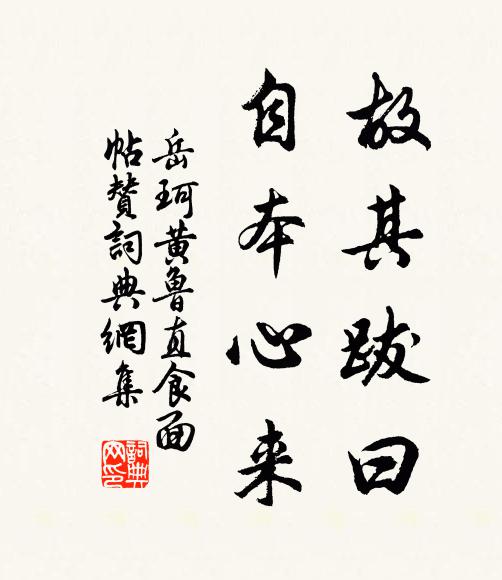 故其跋曰
自本心来
岳珂黄鲁直食面
帖贊詞典網集
詞典網印